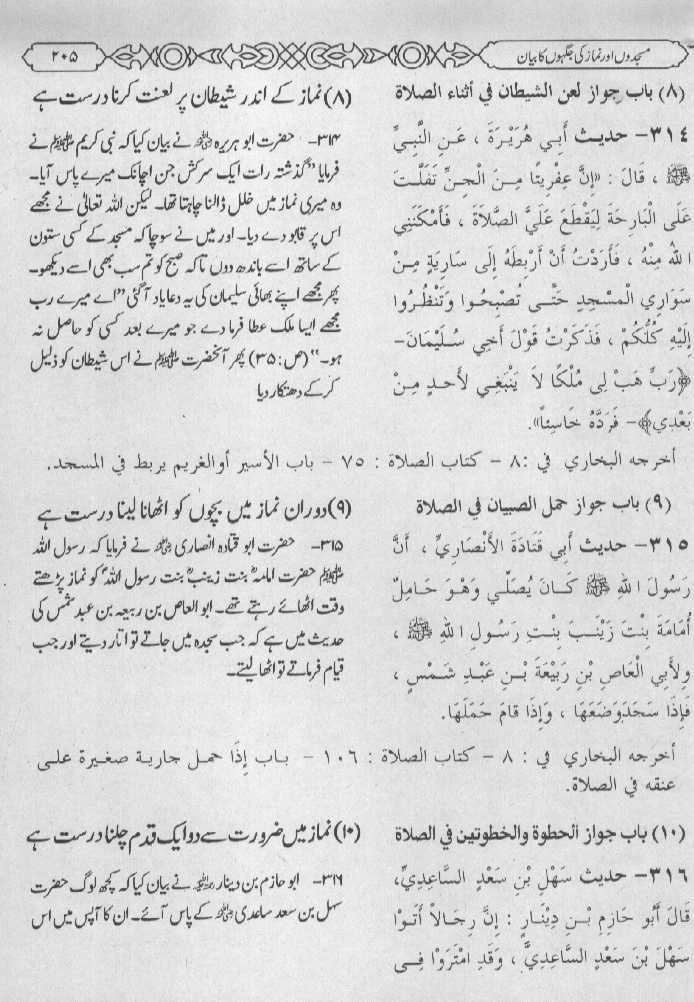 مسجدوں اور نماز کی جگہوں کا بیان
۲۰۵
(٨) باب جواز لعن الشيطان في أثناء الصلاة
٣١٤- حديث أَبِي هُرَيْرَةَ ، عَنِ النَّبِيِّ
ﷺ ، قَالَ : «إِنَّ عِفْرِيتًا مِنَ الْجِنِّ تَفَلَّتَ
عَلَى الْبَارِحَةَ لِيَقْطَعَ عَلَيَّ الصَّلَاةَ ، فَأَمْكَنَنِي
اللهُ مِنْهُ ، فَأَرَدْتُ أَنْ أَرْبِطَهُ إِلَى سَارِيَةٍ مِنْ
سَوَارِي الْمَسْجِدِ حَتَّى تُصْبِحُوا وَتَنْظُرُوا
إِلَيْهِ كُلُّكُمْ ، فَذَكَرْتُ قَوْلَ أَخِي سُلَيْمَانَ-
﴿رَبِّ هَبْ لِى مُلْكًا لَا يَنْبَغِي لأَحدٍ مِنْ
بَعْدِي﴾- فَرَدَّهُ خَاسِئاً».
(۸) نماز کے اندر شیطان پر لعنت کرنا درست ہے
۳۱۴- حضرت ابو ہریرہ ؓ نے بیان کیا کہ نبی کریم ﷺ نے
فرمایا ”گذشتہ رات ایک سرکش جن اچانک میرے پاس آیا۔
وہ میری نماز میں خلل ڈالنا چاہتا تھا۔ لیکن اللہ تعالیٰ نے مجھے
اس پر قابو دے دیا۔ اور میں نے سوچا کہ مسجد کے کسی ستون
کے ساتھ اسے باندھ دوں تاکہ صبح کو تم سب بھی اسے دیکھو۔
پھر مجھے اپنے بھائی سلیمان کی یہ دعا یاد آ گئی ”اے میرے رب
مجھے ایسا ملک عطا فرما دے جو میرے بعد کسی کو حاصل نہ
ہو۔“ (ص:۳۵) پھر آنحضرت ﷺ نے اس شیطان کو ذلیل
کر کے دھتکار دیا
أخرجه البخاري في :٨ - كتاب الصلاة : ٧٥ - باب الأسير أوالغريم يربط في المسجد.
(٩) باب جواز حمل الصبيان في الصلاة
٣١٥- حديث أَبِي قَتَادَةَ الأَنْصَارِيِّ ، أَنَّ
رَسُولَ اللهِ ﷺ كَانَ يُصَلِّي وَهْوَ حَامِلٌ
أُمَامَةَ بِنْتَ زَيْنَبَ بِنْتِ رَسُولِ اللهِ ﷺ ،
وِلأَبِي الْعَاصِ بْنِ رَبِيْعَةَ بْنِ عَبْدِ شَمْسٍ ،
فَإِذَا سَجَدَوَضَعَهَا ، وَإِذَا قَامَ حَمَلَهَا.
(۹) دوران نماز میں بچوں کو اٹھانا لینا درست ہے
۳۱۵- حضرت ابو قتادہ انصاری ؓ نے فرمایا کہ رسول اللہ
ﷺ حضرت امامہؓ بنت زینبؓ بنت رسول اللہؐ کو نماز پڑھتے
وقت اٹھائے رہتے تھے۔ ابو العاص بن ربیعہ بن عبد شمس کی
حدیث میں ہے کہ جب سجدہ میں جاتے تو اتار دیتے اور جب
قیام فرماتے تو اٹھا لیتے۔
أخرجه البخاري في : ٨ - كتاب الصلاة : ١٠٦ - باب إِذَا حمل جارية صغيرة على
عنقه في الصلاة.
(١٠) باب جواز الحطوة والخطوتين في الصلاة
٣١٦- حديث سَهْلِ بْنِ سَعْدٍ السَّاعِدِيِّ،
قَالَ أَبُو حَازِمِ بْنِ دِيْنَارٍ : إِنَّ رِجَالاً أَتَوْا
سَهْلَ بْنَ سَعْدٍ السَّاعِدِيَّ ، وَقَدِ امْتَرَوْا فِى
(۱۰) نماز میں ضرورت سے دو ایک قدم چلنا درست ہے
۳۱۶- ابو حازم بن دینار ؒ نے بیان کیا کہ کچھ لوگ حضرت
سہل بن سعد ساعدی ؓ کے پاس آئے۔ ان کا آپس میں اس